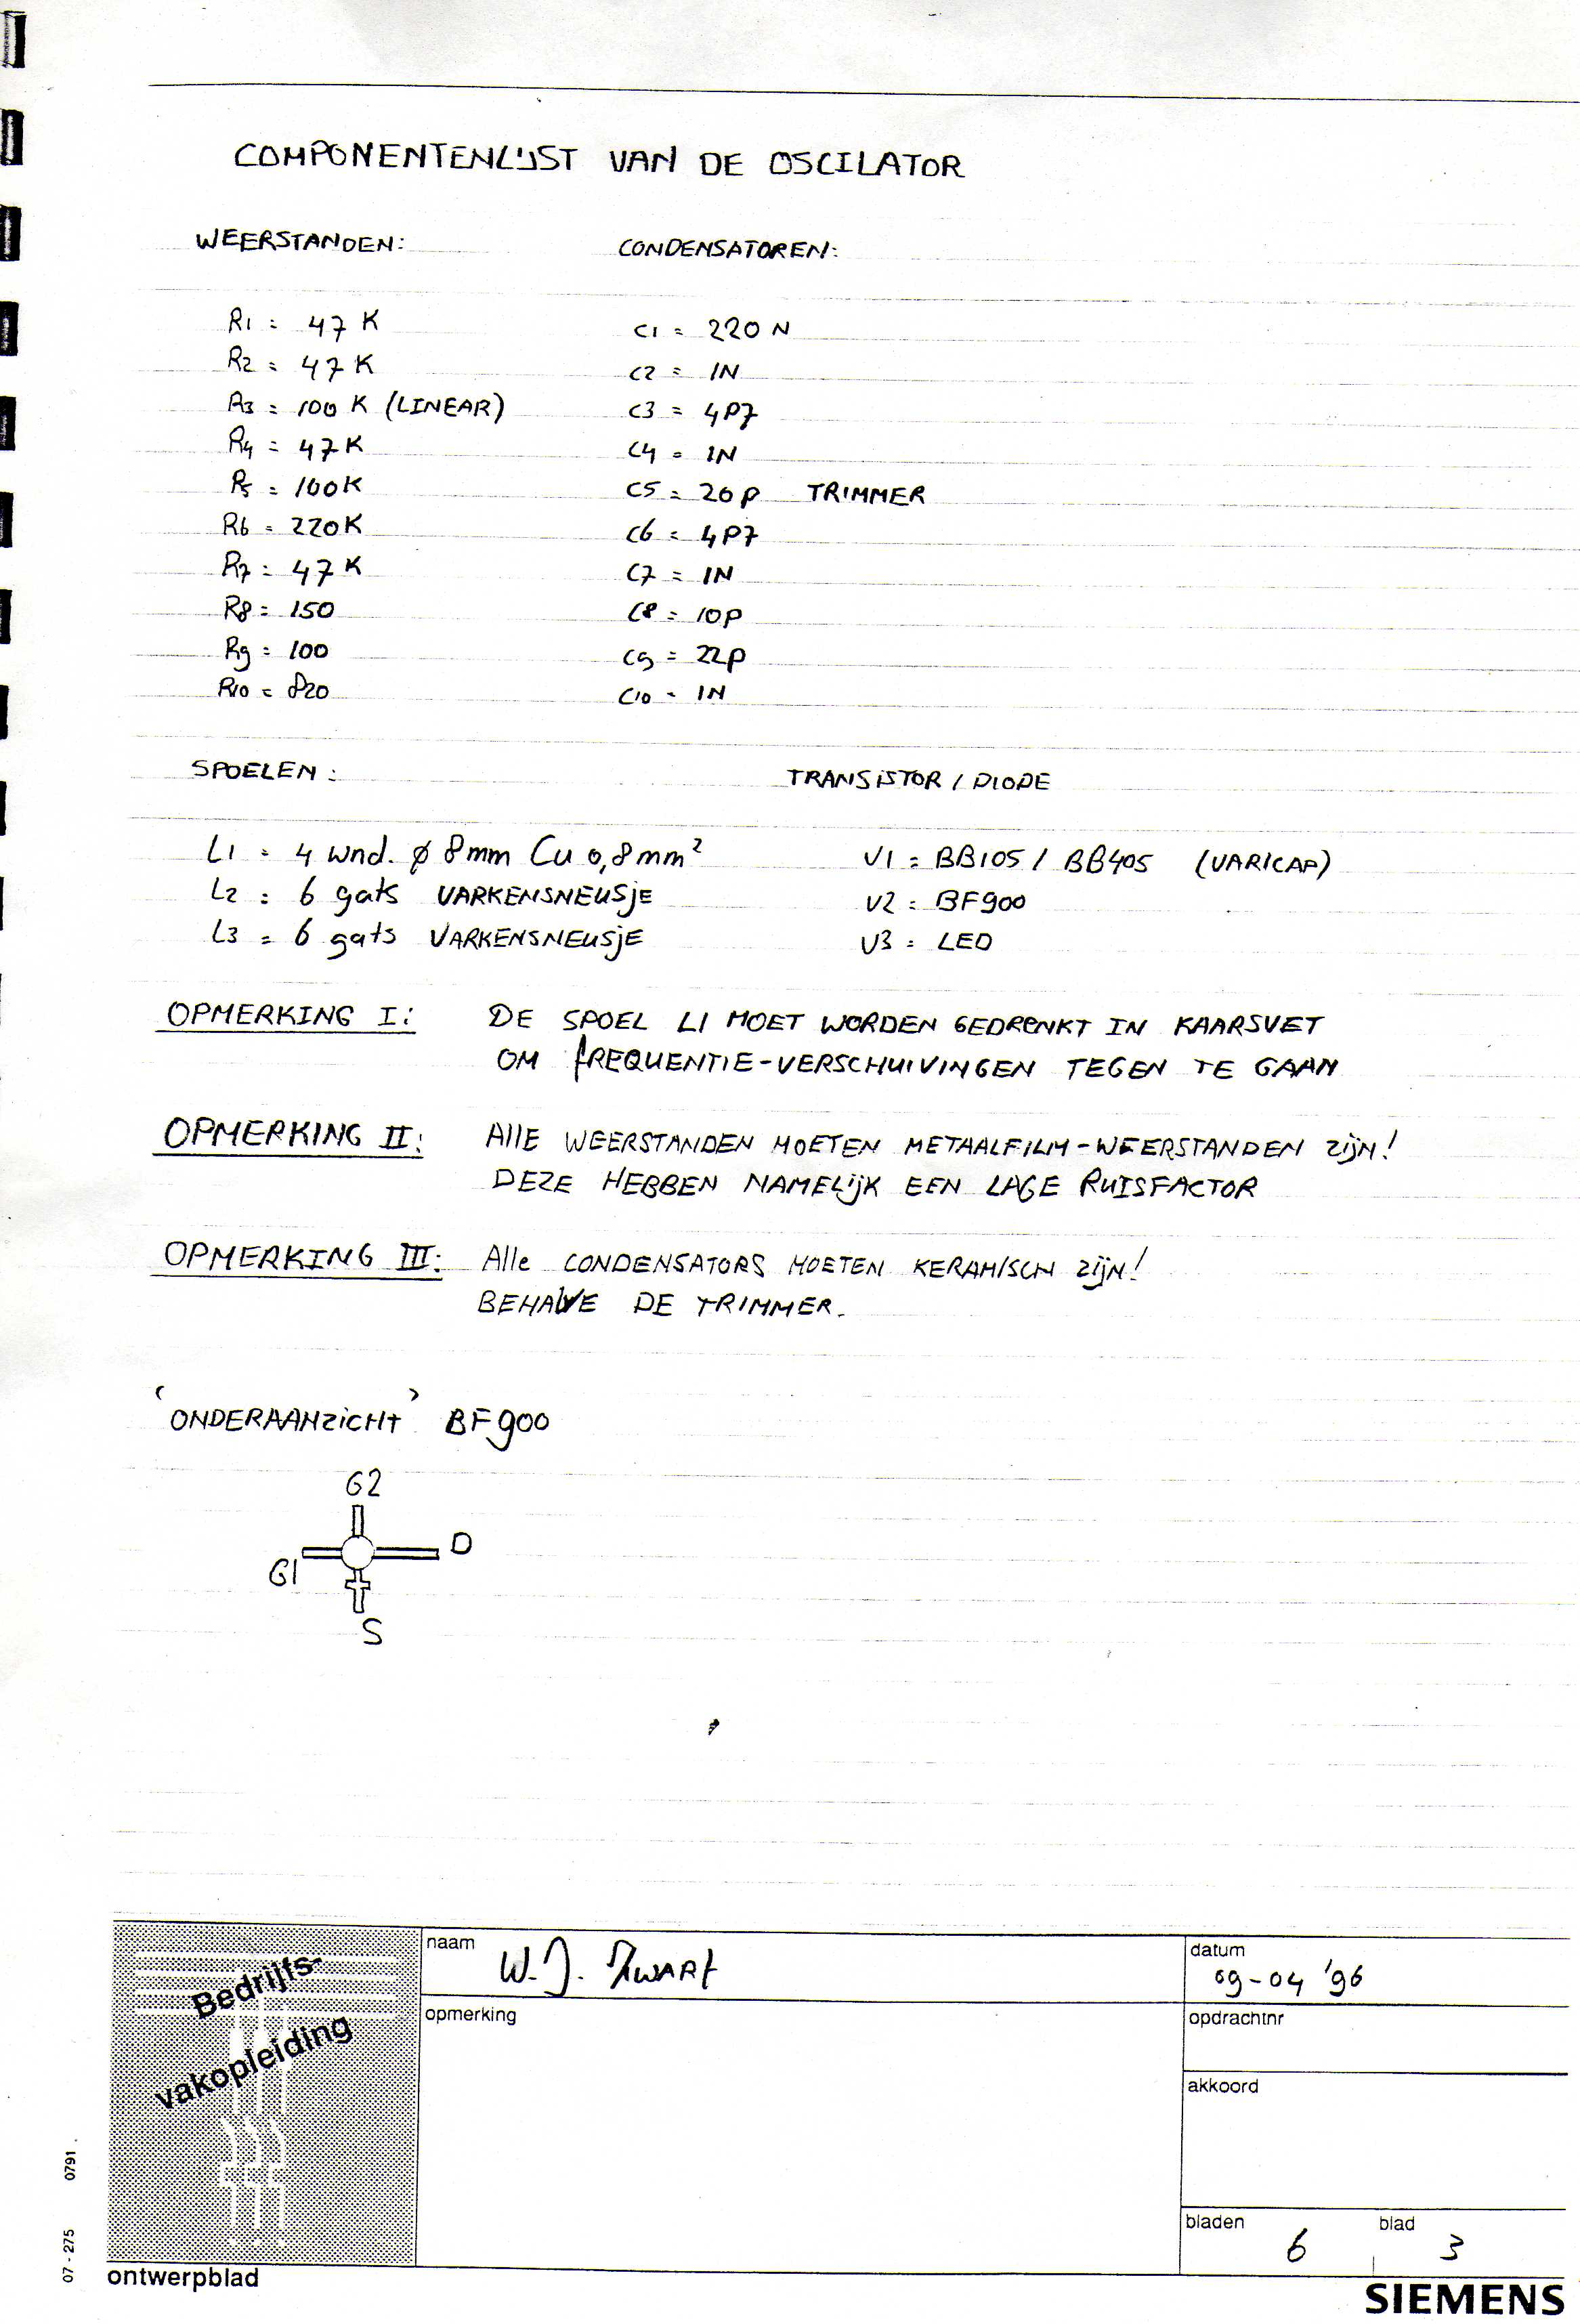 COMPONENTENLIJST VAN DE OSCILATOR
WEERSTANDEN: CONDENSATOREN:
R1 = 47 K C1 = 220 N
R2 = 47 K C2 = 1N
R3 = 100 K (LINEAR) C3 = 4P7
R4 = 47K C4 = 1N
R5 = 100K C5 = 20p TRIMMER
R6 = 220K C6 = 4P7
R7 = 47K C7 = 1N
R8 = 150 C8 = 10p
R9 = 100 C9 = 22p
R10 = 820 C10 = 1N
SPOELEN: TRANSISTOR / DIODE
L1 = 4 wnd. ϕ 8mm Cu 0,8mm² V1 = BB105 / BB405 (VARICAP)
L2 = 6 gats VARKENSNEUSJE V2 = BF900
L3 = 6 gats VARKENSNEUSJE V3 = LED
OPMERKING I: DE SPOEL L1 MOET WORDEN GEDRENKT IN KAARSVET
OM FREQUENTIE-VERSCHUIVINGEN TEGEN TE GAAN
OPMERKING II: AllE WEERSTANDEN MOETEN METAALFILM-WEERSTANDEN ZIJN!
DEZE HEBBEN NAMELIJK EEN LAGE RUISFACTOR
OPMERKING III: Alle CONDENSATORS MOETEN KERAMISCH ZIJN!
BEHALVE DE TRIMMER.
'ONDERAANZICHT' BF900
G2
D
G1
S
Bedrijfs-
vakopleiding
naam W.J. Zwart datum 09-04 '96
opmerking opdrachtnr
akkoord
bladen 6 blad 3
07 - 275 0791
ontwerpblad
SIEMENS